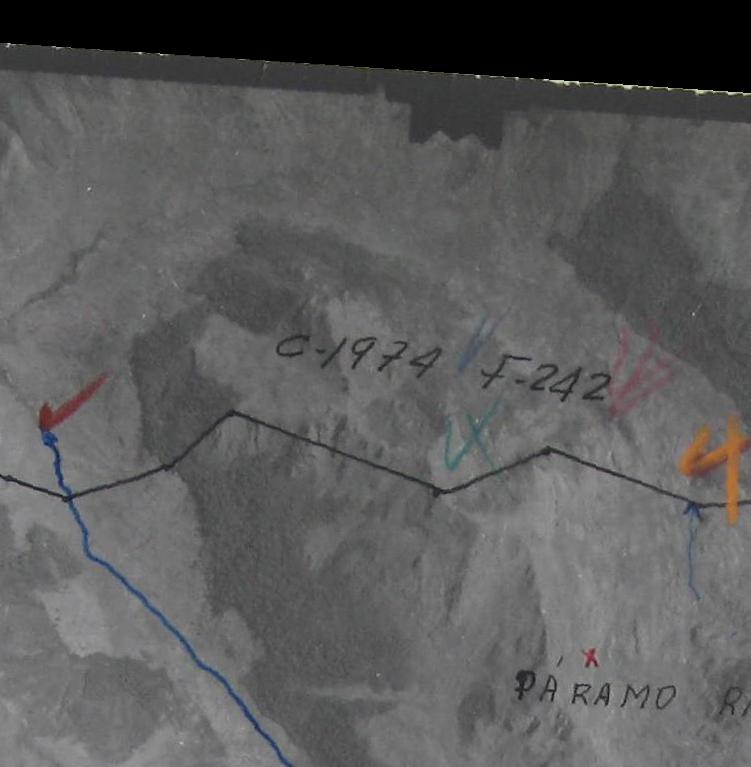 C-1974 F-242
4
PÁRAMO